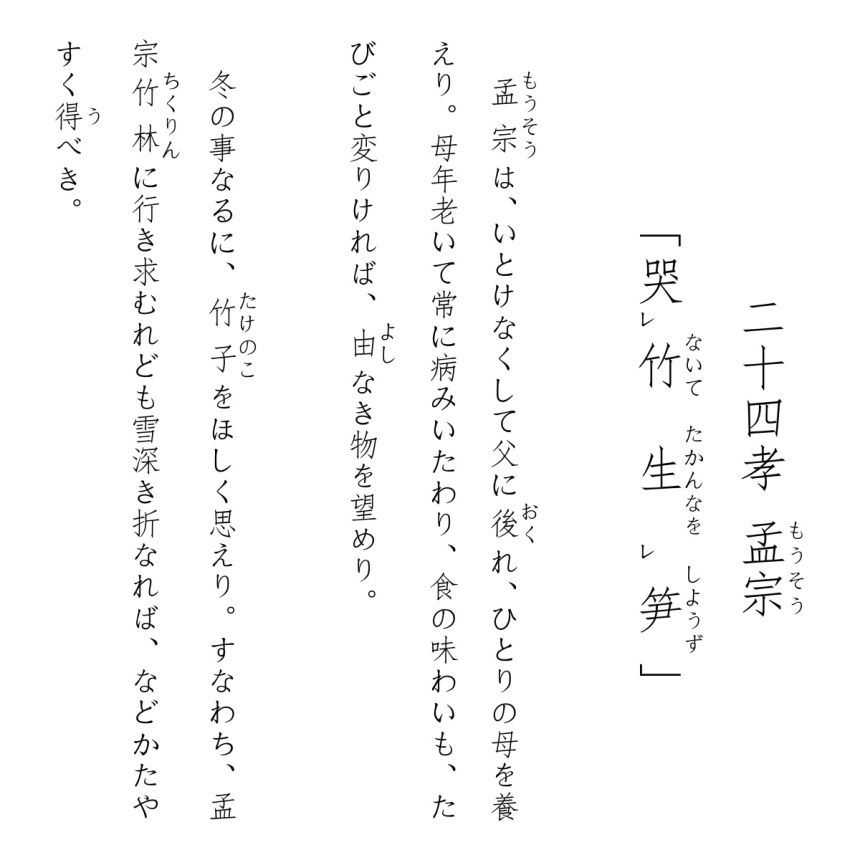 二十四孝 孟宗
もうそう
「哭レ竹 生レ笋」
ないて たかんなを しようず
孟宗は、いとけなくして父に後れ、ひとりの母を養
もうそう おく
えり。母年老いて常に病みいたわり、食の味わいも、た
びごと変りければ、由なき物を望めり。
よし
冬の事なるに、竹子をほしく思えり。すなわち、孟
たけのこ
宗竹林に行き求むれども雪深き折なれば、などかたや
ちくりん
すく得べき。
う